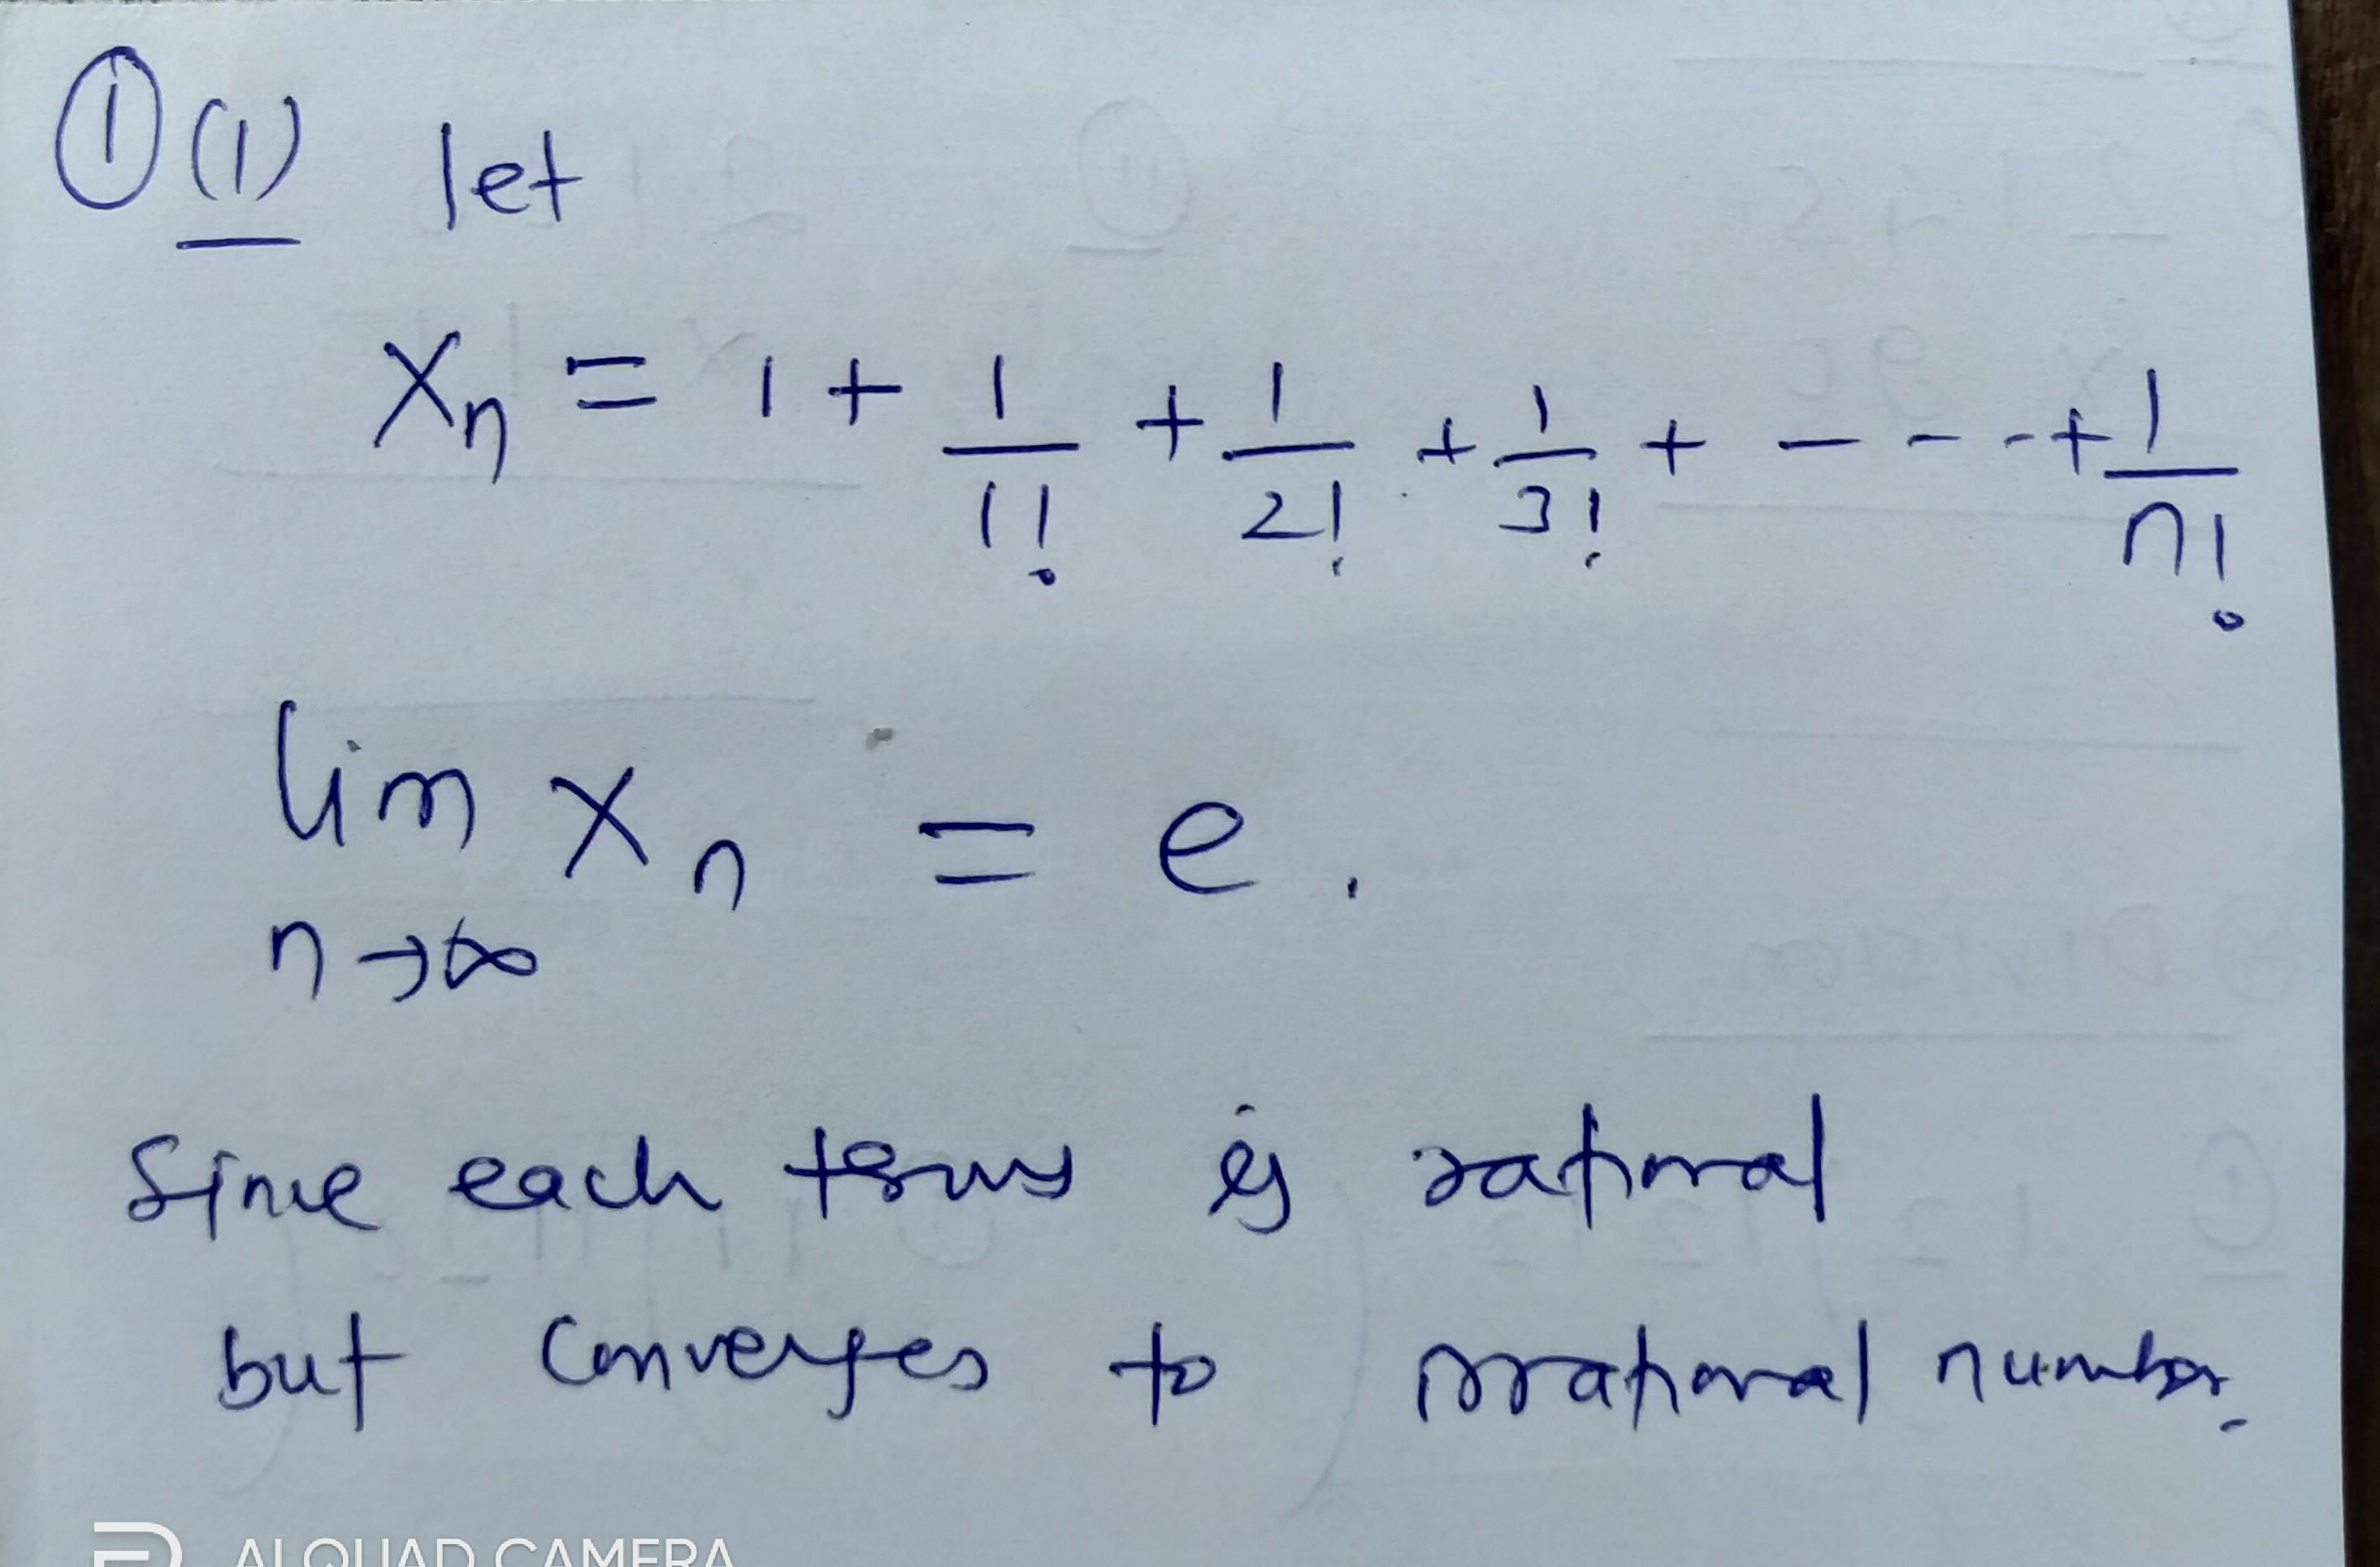 ① (1) let
Xn = 1 + 1/1! + 1/2! + 1/3! + - - - + 1/n!
lim Xn = e.
n→∞
Since each terms is rational
but converges to irrational number.
AI QUAD CAMERA